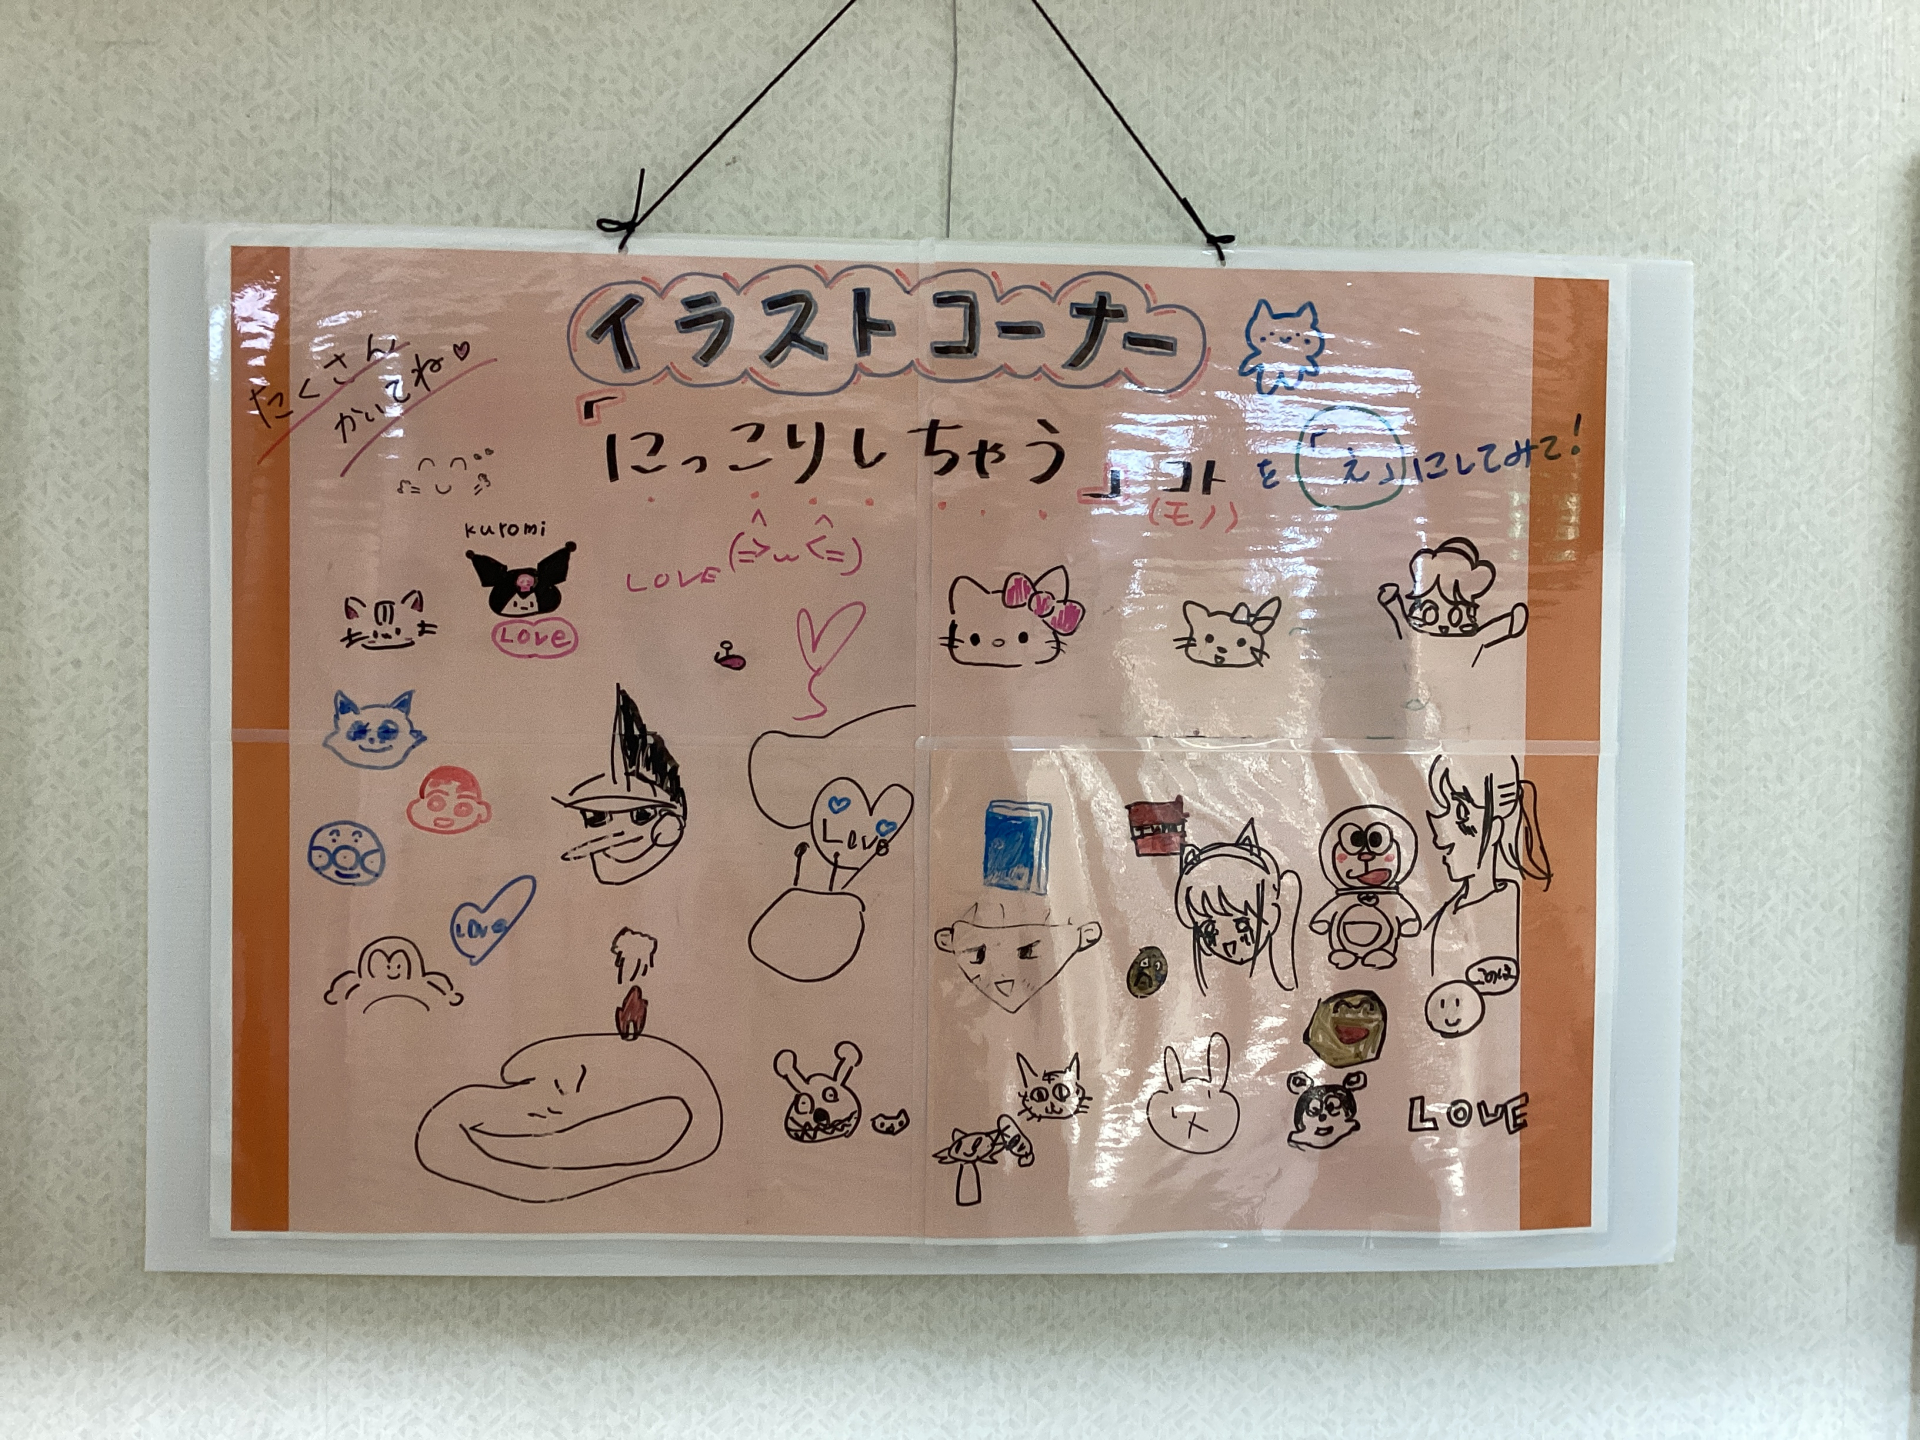 イラストコーナー
たくさん
かいてね♡
『にっこりしちゃう』コト
(モノ)
を「え」にしてみて!
kuromi
LOVE
Love
LOVE
Love
LOVE